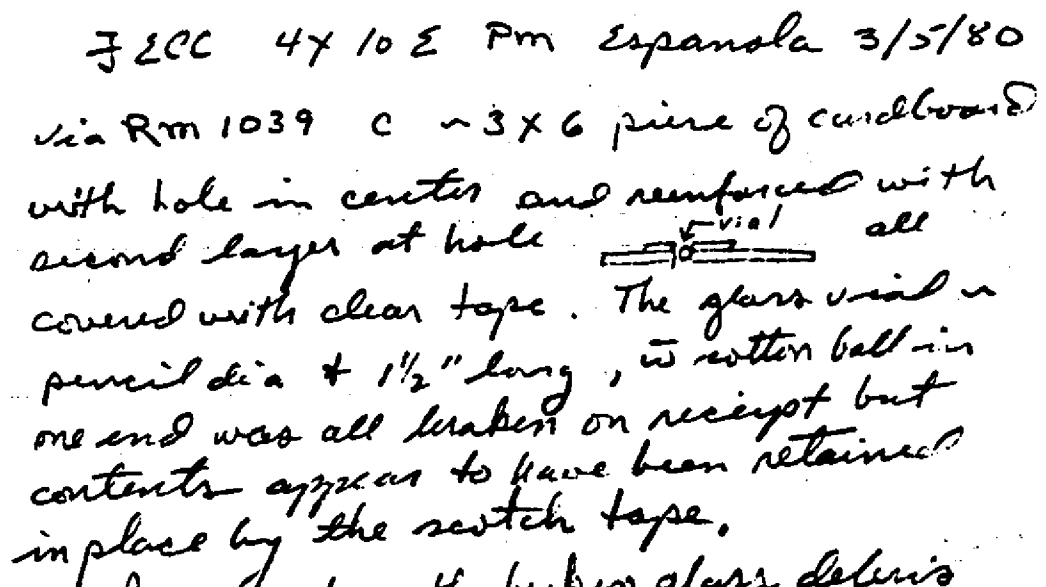 FECC 4X10 E Pm Espanola 3/5/80
via Rm 1039 C ~3X6 piece of cardboard
with hole in center and reinforced with
second layer at hole vial all
covered with clear tape. The glass vial ~
pencil dia & 1 1/2" long, w̄ cotton ball in
one end was all broken on receipt but
contents appear to have been retained
in place by the scotch tape.
broken glass debris